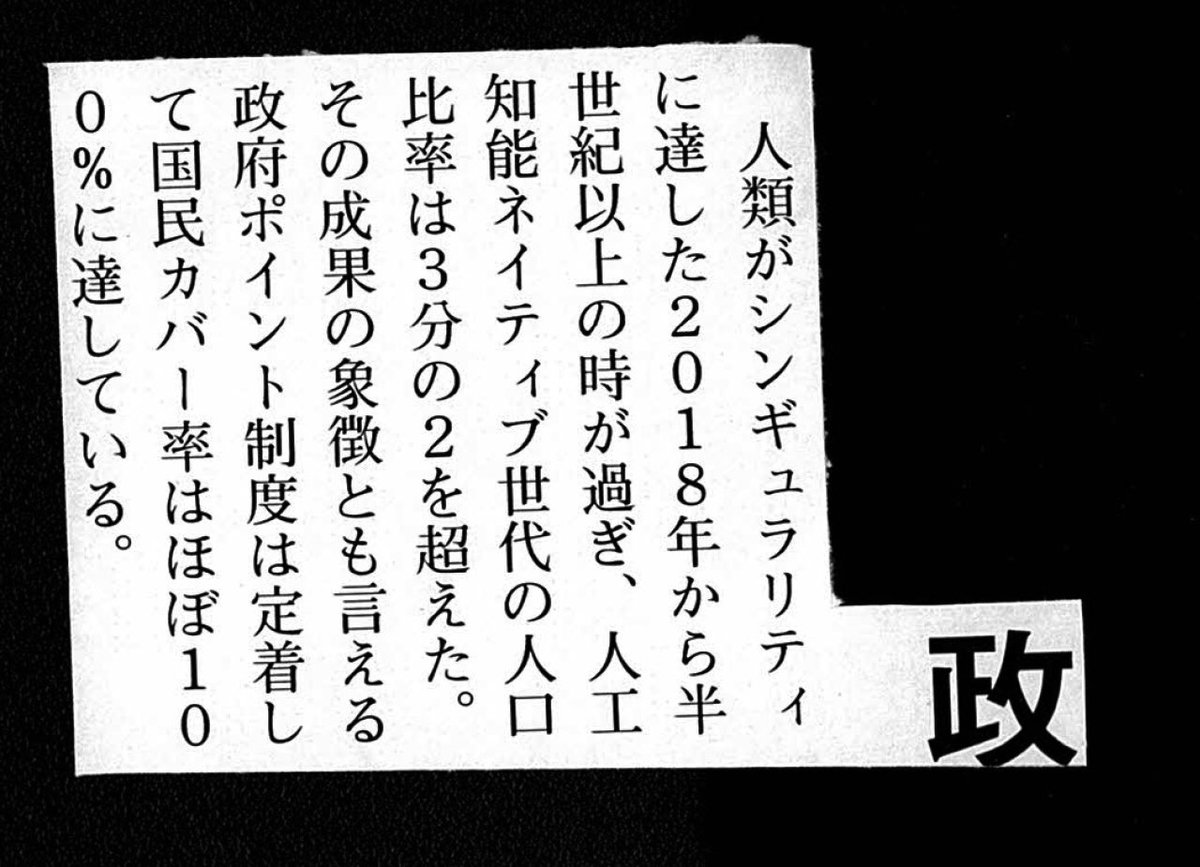 政
人類がシンギュラリティ
に達した2018年から半
世紀以上の時が過ぎ、人工
知能ネイティブ世代の人口
比率は3分の2を超えた。
その成果の象徴とも言える
政府ポイント制度は定着し
て国民カバー率はほぼ10
0%に達している。